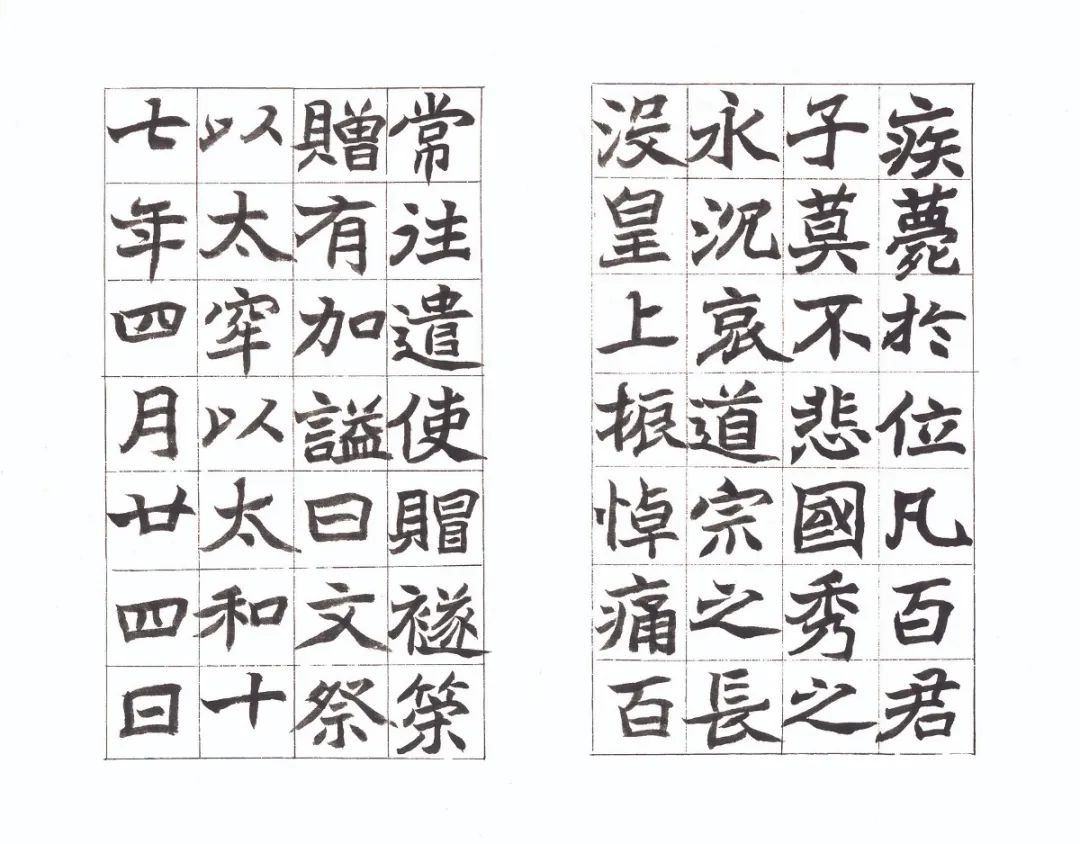 疾薨於位凡百君
子莫不悲國秀之
永沉哀道宗之長
沒皇上振悼痛百
常往遣使賵襚策
贈有加謚曰文祭
以太窂以太和十
七年四月廿四日